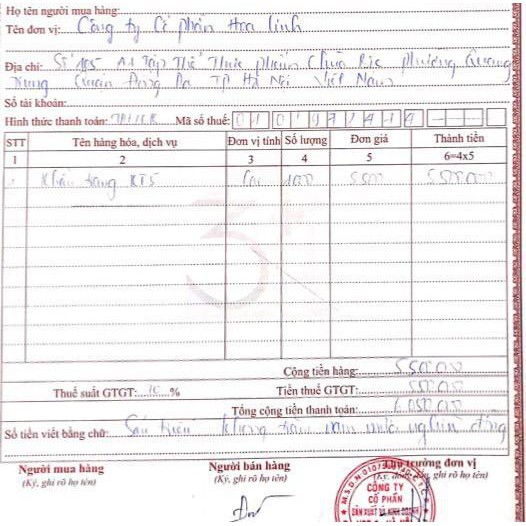 Họ tên người mua hàng:
Tên đơn vị: Công ty Cổ phần Hoa Linh
Địa chỉ: Số 105 A1 Tập Thể Thực phẩm Chùa Bộc phường Quang
Trung Quận Đống Đa TP Hà Nội Việt Nam
Số tài khoản:
Hình thức thanh toán: TM/CK Mã số thuế:
STT Tên hàng hóa, dịch vụ Đơn vị tính Số lượng Đơn giá Thành tiền
1 2 3 4 5 6=4x5
Khẩu trang KT5 Cái 1000 5500 5500000
Cộng tiền hàng: 5500000
Thuế suất GTGT: 10 % Tiền thuế GTGT: 550000
Tổng cộng tiền thanh toán: 6.050.000
Số tiền viết bằng chữ: Sáu triệu không trăm năm mươi nghìn đồng
Người mua hàng Người bán hàng Thủ trưởng đơn vị
(Ký, ghi rõ họ tên) (Ký, ghi rõ họ tên) (Ký, đóng dấu, ghi rõ họ tên)
CÔNG TY
CỔ PHẦN
SẢN XUẤT VÀ KINH DOANH